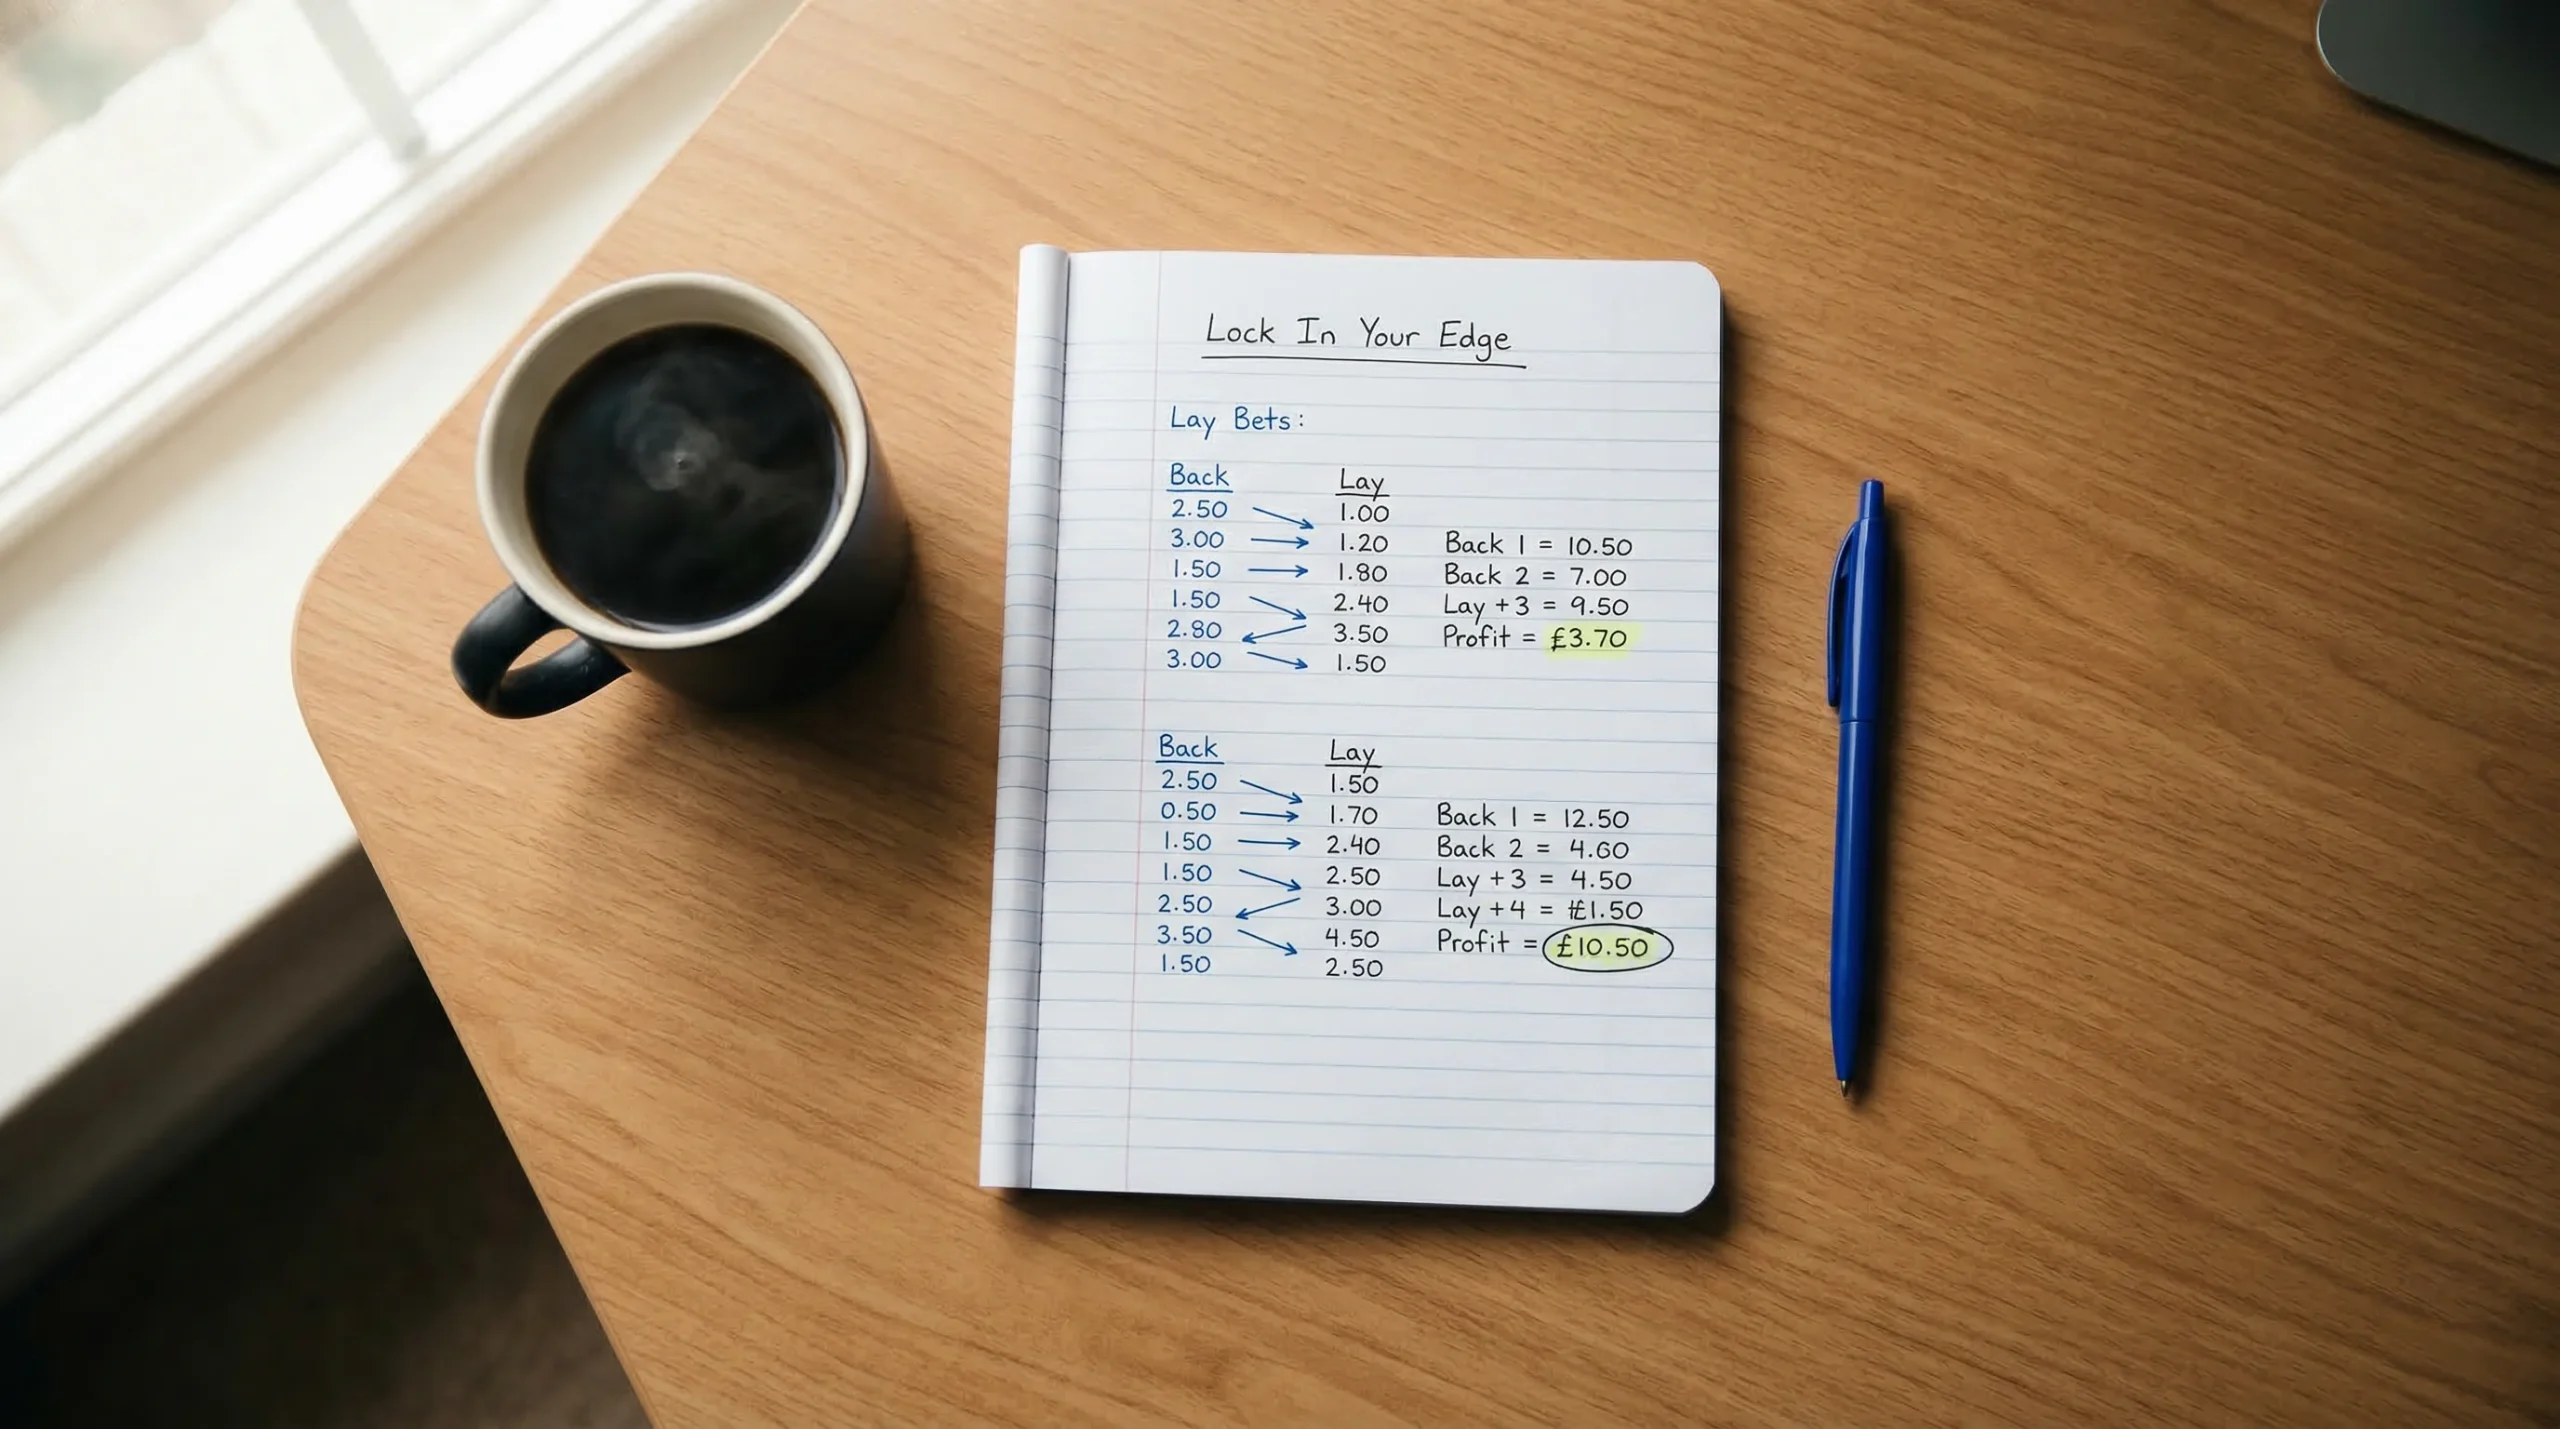 Lock In Your Edge
Lay Bets:
Back Lay
2.50 1.00
3.00 1.20 Back 1 = 10.50
1.50 1.80 Back 2 = 7.00
1.50 2.40 Lay +3 = 9.50
2.80 3.50 Profit = £3.70
3.00 1.50
Back Lay
2.50 1.50
0.50 1.70 Back 1 = 12.50
1.50 2.40 Back 2 = 4.60
1.50 2.50 Lay +3 = 4.50
2.50 3.00 Lay +4 = £1.50
3.50 4.50 Profit = £10.50
1.50 2.50